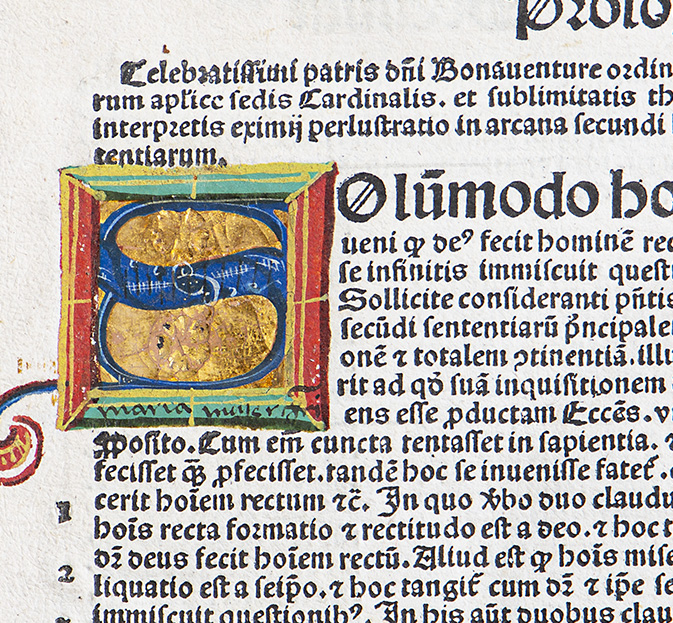 Prolo
Celebratissimi patris dñi Bonauenture ordin
rum aplicc sedis Cardinalis. et sublimitatis th
interpretis eximij perlustratio in arcana secundi
tentiarum.
SOlũmodo ho
ueni ꝙ deꝰ fecit hominẽ rec
se infinitis immiscuit questi
Sollicite consideranti pñtis
secũdi sententiarũ p̃ncipale
onẽ ⁊ totalem ꝯtinentiã. illu
rit ad qð suã inquisitionem
ens esse ꝓductam Ecces̃. v
maria
pposito. Cum em̃ cuncta tentasset in sapientia. ⁊
fecisset qȝ̃ ꝓfecisset. tandẽ hoc se inuenisse fatet̃.
cerit hoĩem rectum ⁊c̃. In quo v̾bo duo claudu
1 hoĩs recta formatio ⁊ rectitudo est a deo. ⁊ hoc t
dr̃ deus fecit hoĩem rectũ. Aliud est ꝙ hoĩs mise
2 liquatio est a seip̃o. ⁊ hoc tangit̃ cum dr̃ ⁊ ip̃e se
immiscuit questionibꝰ. In his aũt duobus clau